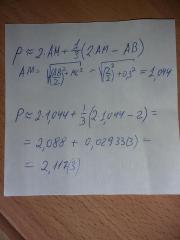 P ≈ 2·AM + 1/3 (2AM − AB)
AM = √((AB/2)² + MC²) = √((2/2)² + 0,3²) = 1,044
P ≈ 2·1,044 + 1/3 (2·1,044 − 2) =
= 2,088 + 0,02933(3) =
= 2,117(3)